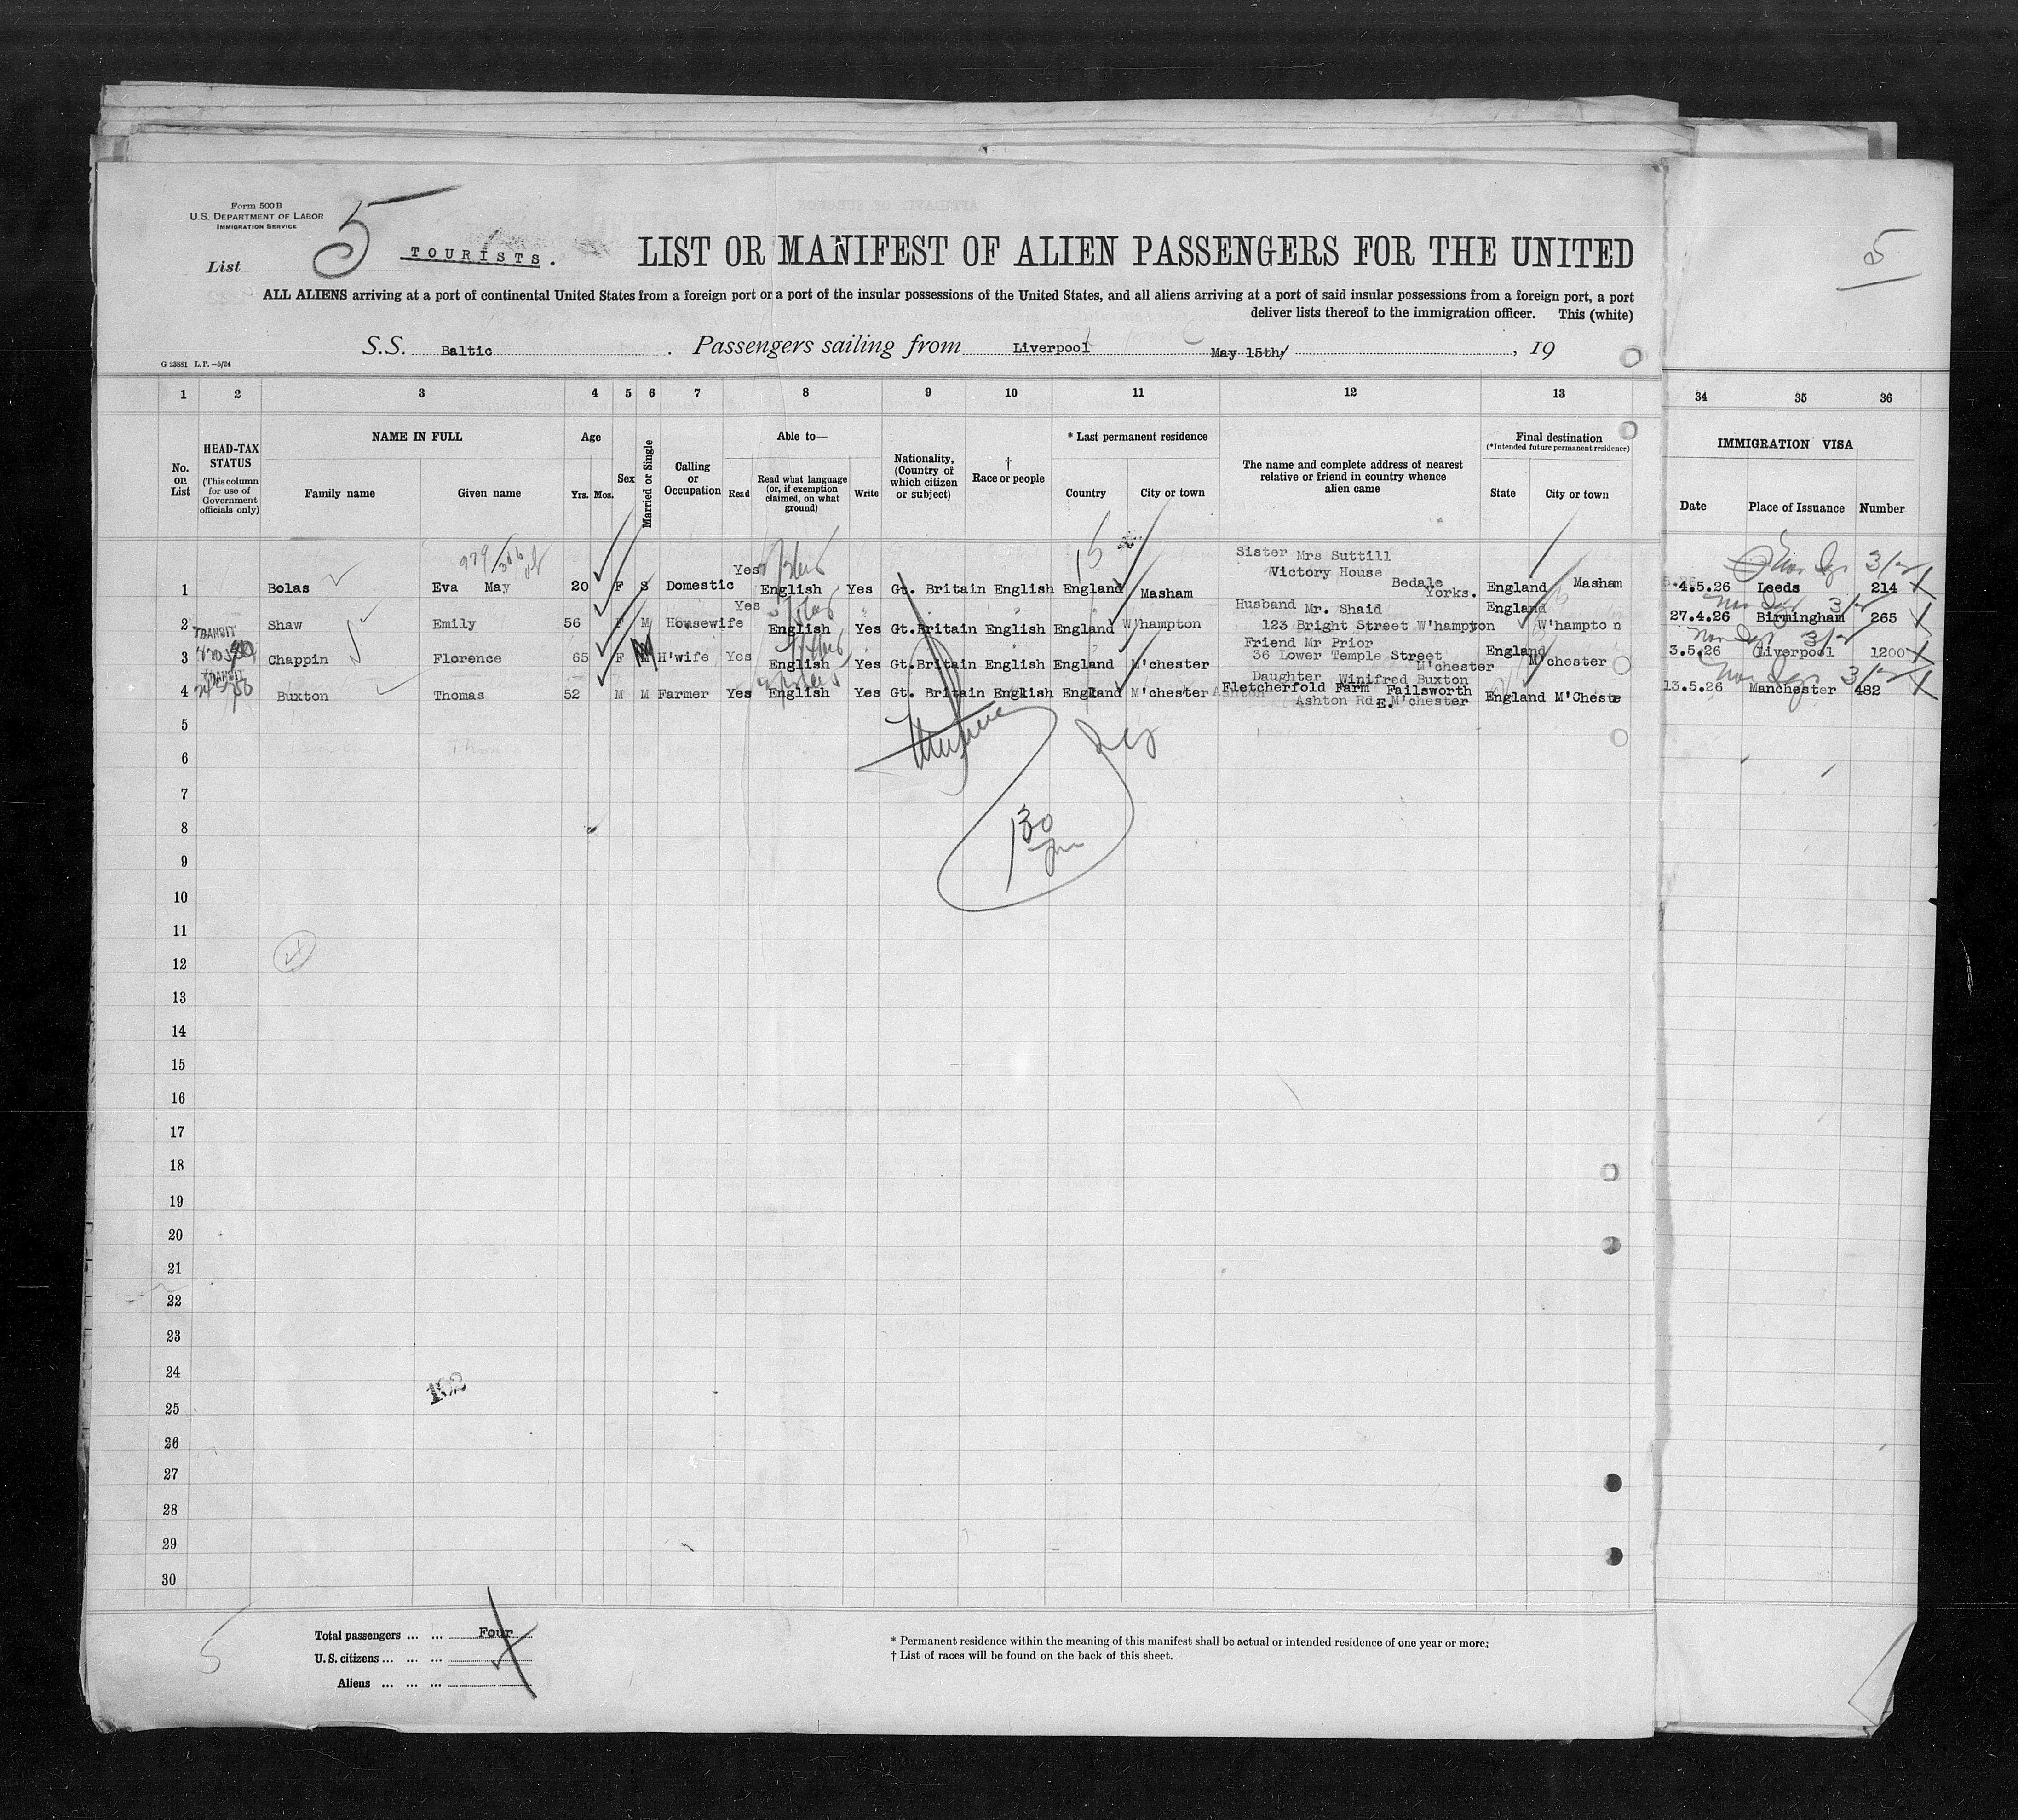 Form 500B
U.S. DEPARTMENT OF LABOR
IMMIGRATION SERVICE
List 5 TOURISTS.
LIST OR MANIFEST OF ALIEN PASSENGERS FOR THE UNITED
5
ALL ALIENS arriving at a port of continental United States from a foreign port or a port of the insular possessions of the United States, and all aliens arriving at a port of said insular possessions from a foreign port, a port
deliver lists thereof to the immigration officer. This (white)
S.S. Baltic. Passengers sailing from Liverpool May 15th, 19
G 23881 L.P.—5/24
1 2 3 4 5 6 7 8 9 10 11 12 13 34 35 36
No. on List
HEAD-TAX STATUS (This column for use of Government officials only)
NAME IN FULL
Family name
Given name
Age
Yrs. Mos.
Sex
Married or Single
Calling or Occupation
Able to—
Read
Read what language (or, if exemption claimed, on what ground)
Write
Nationality, (Country of which citizen or subject)
† Race or people
* Last permanent residence
Country
City or town
The name and complete address of nearest relative or friend in country whence alien came
Final destination
(*Intended future permanent residence)
State
City or town
IMMIGRATION VISA
Date
Place of Issuance
Number
1 Bolas Eva May 20 F S Domestic Yes English Yes Gt. Britain English England Masham Sister Mrs Suttill Victory House Bedale Yorks. England Masham 4.5.26 Leeds 214
2 Shaw Emily 56 F M Housewife Yes English Yes Gt.Britain English England W'hampton Husband Mr. Shaid 123 Bright Street W'hampton England W'hampton 27.4.26 Birmingham 265
TRANSIT
3 Chappin Florence 65 F H'wife Yes English Yes Gt.Britain English England M'chester Friend Mr Prior 36 Lower Temple Street M'chester England M'chester 3.5.26 Liverpool 1200
TRANSIT
4 Buxton Thomas 52 M M Farmer Yes English Yes Gt. Britain English England M'chester Daughter Winifred Buxton Fletcherfold Farm Failsworth Ashton Rd E. M'chester England M'Cheste 13.5.26 Manchester 482
5
6
7
8
9
10
11
12
13
14
15
16
17
18
19
20
21
22
23
24
25
26
27
28
29
30
130
102
5
Total passengers ... ... Four
U.S. citizens ... ... ...
Aliens ... ... ...
* Permanent residence within the meaning of this manifest shall be actual or intended residence of one year or more;
† List of races will be found on the back of this sheet.